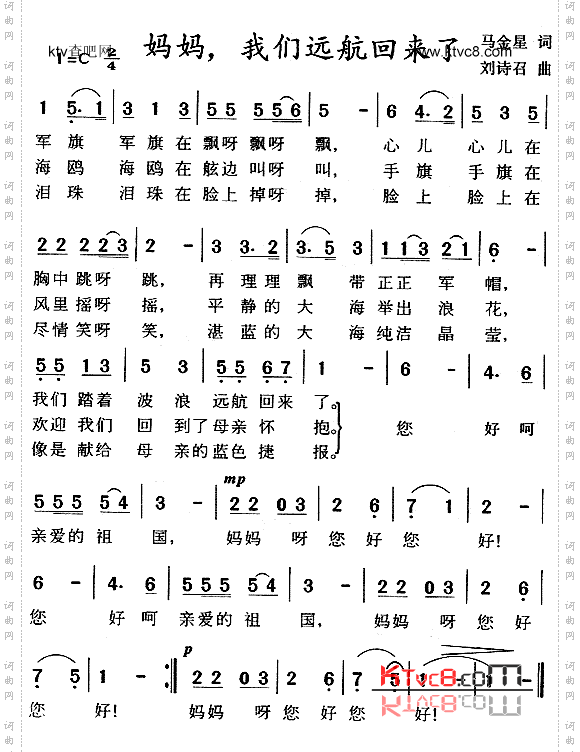 妈妈，我们远航回来了
ktv查吧网
www.ktvc8.com
马金星 词
1=C 2/4
刘诗召 曲
1 5· 1 | 3 3 3 | 55 556 | 5 - | 6 4· 2 | 5 5 5 |
军旗 军旗在飘呀飘呀 飘， 心儿 心儿在
海鸥 海鸥在舷边叫呀 叫， 手旗 手旗在
泪珠 泪珠在脸上掉呀 掉， 脸上 脸上在
22 223 | 2 - | 3 3· 2 | 3· 5 3 | 113 221 | 2 - |
胸中跳呀 跳， 再理理飘 带正正 军 帽，
风里摇呀 摇， 平静的大 海举出 浪 花，
尽情笑呀 笑， 湛蓝的大 海纯洁 晶 莹，
55 13 | 5 3 | 55 67 | 1 - | 6 - | 4· 6 |
我们踏着 波浪 远航回来 了。
欢迎我们 回到了母亲怀 抱。 您 好呵
像是献给 母亲的蓝色捷 报。
mp
555 554 | 3 - | 22 03 | 2 6 | 7 1 | 2 - |
亲爱的祖 国， 妈妈 呀您好您 好！
6 - | 4· 6 | 555 554 | 3 - | 22 03 | 2 6 |
您 好呵 亲爱的祖 国， 妈妈 呀您好
p
7 5 | 1 - :| 22 03 | 2 6 | 7 5 | 1 - | 1 - |
KTvc8.com
您 好！ 妈妈 呀您好您 好！
词曲网